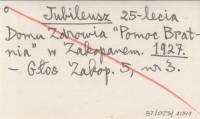 Jubileusz 25-lecia
Domu Zdrowia "Pomoc Brat-
nia" w Zakopanem. 1927.
- Głos Zakop. 5, nr 3.